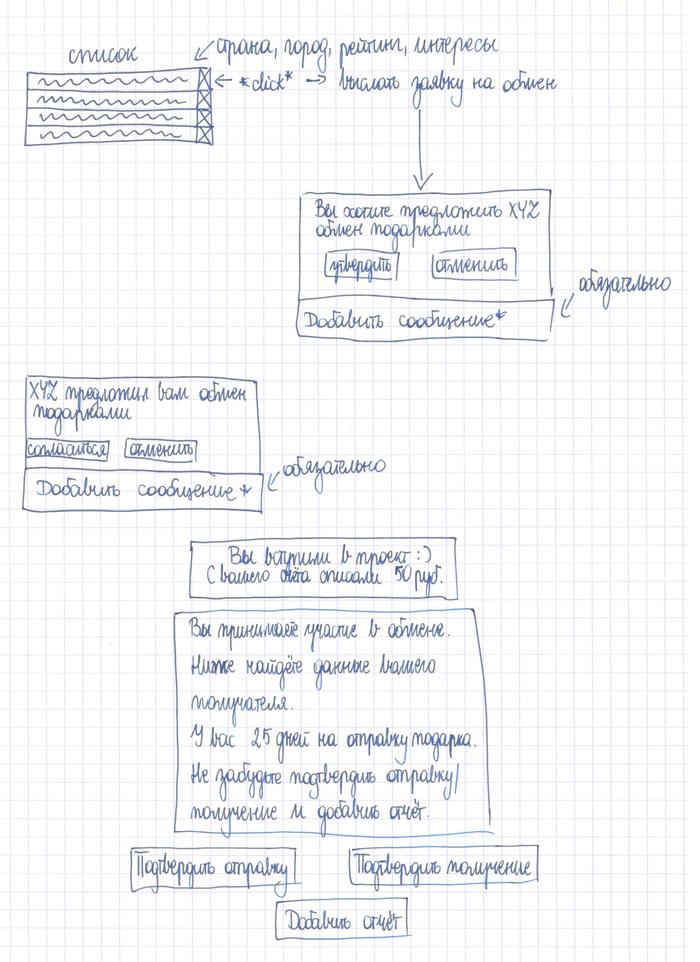 список
страна, город, рейтинг, интересы
*click* → выслать заявку на обмен
Вы хотите предложить XYZ
обмен подарками
утвердить
отменить
обязательно
Добавить сообщение*
XYZ предложил вам обмен
подарками
согласиться
отменить
обязательно
Добавить сообщение*
Вы вступили в проект :)
С вашего счёта списали 50 руб.
Вы принимаете участие в обмене.
Ниже найдёте данные вашего
получателя.
У вас 25 дней на отправку подарка.
Не забудьте подтвердить отправку/
получение и добавить отчёт.
Подтвердить отправку
Подтвердить получение
Добавить отчёт